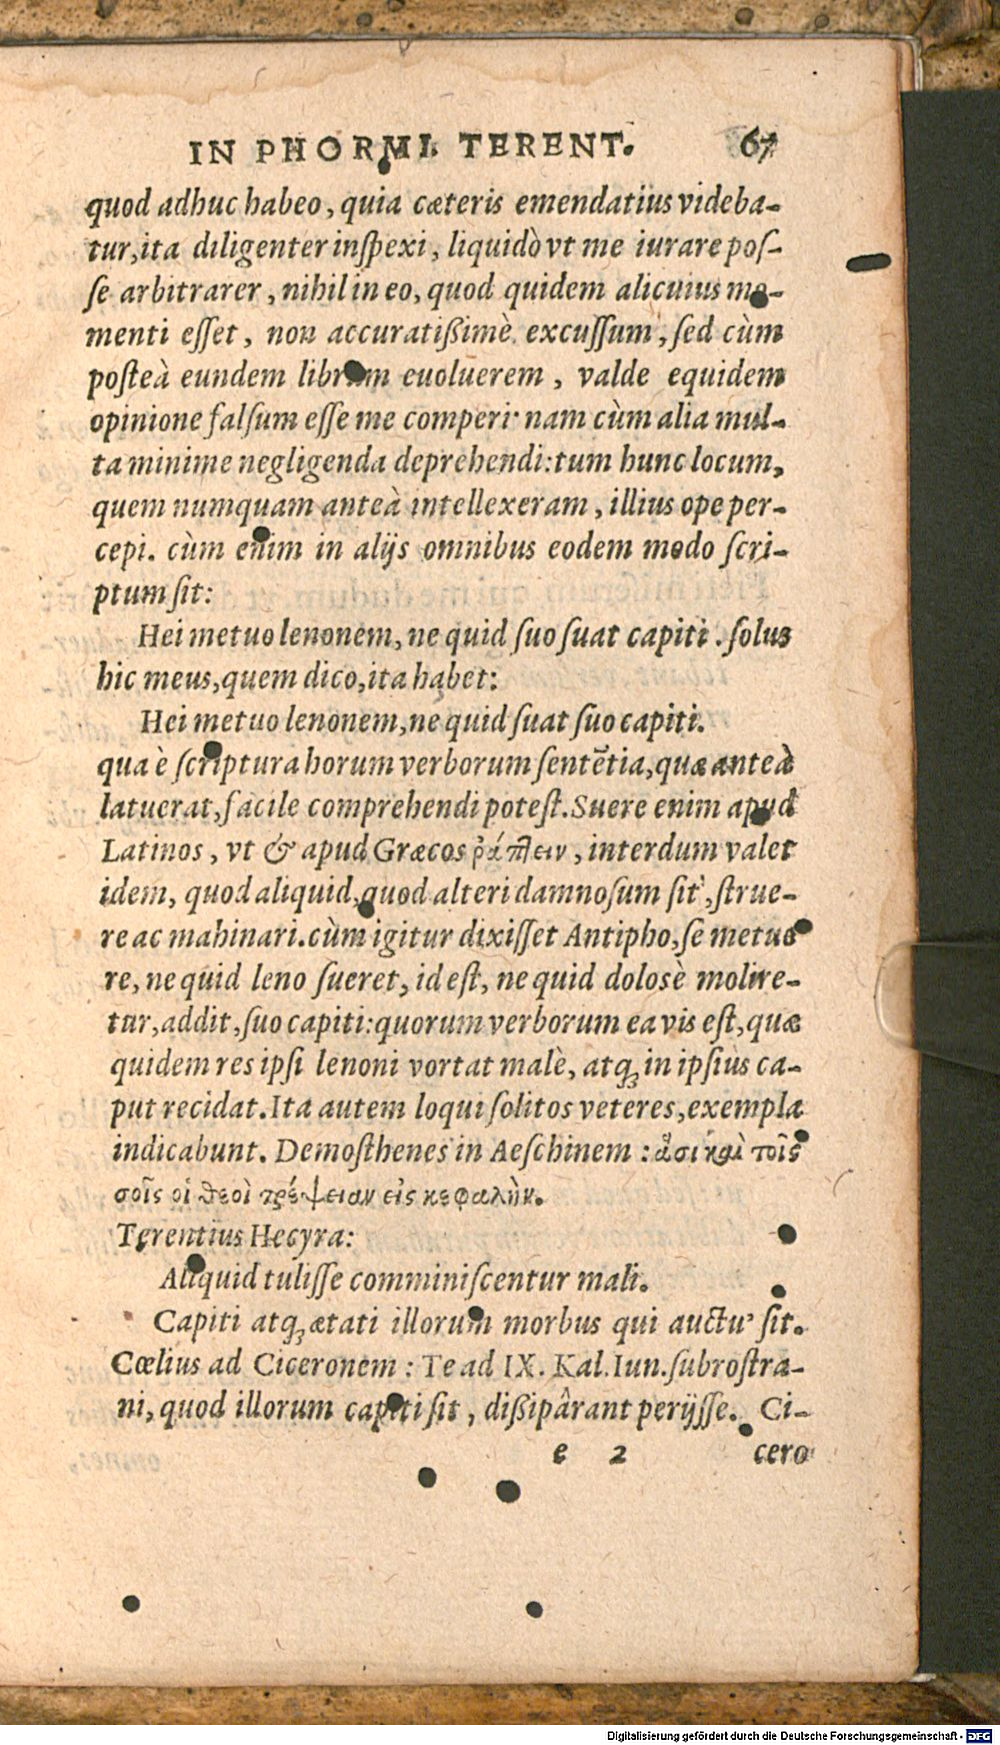 IN PHORMI. TERENT. 67
quod adhuc habeo, quia cæteris emendatius videba-
tur, ita diligenter inſpexi, liquidò vt me iurare poſ-
ſe arbitrarer, nihil in eo, quod quidem alicuius mo-
menti eſſet, non accuratißimè excuſſum, ſed cùm
poſteà eundem librum euoluerem, valde equidem
opinione falſum eſſe me comperi· nam cùm alia mul-
ta minime negligenda deprehendi: tum hunc locum,
quem numquam anteà intellexeram, illius ope per-
cepi. cùm enim in alijs omnibus eodem modo ſcri-
ptum ſit:
Hei metuo lenonem, ne quid ſuo ſuat capiti. ſolus
hic meus, quem dico, ita habet:
Hei metuo lenonem, ne quid ſuat ſuo capiti.
qua è ſcriptura horum verborum ſentētia, quæ anteà
latuerat, facile comprehendi poteſt. Suere enim apud
Latinos, vt & apud Græcos ῥάπτειν, interdum valet
idem, quod aliquid, quod alteri damnoſum ſit, ſtrue-
re ac mahinari. cùm igitur dixiſſet Antipho, ſe metue
re, ne quid leno ſueret, id eſt, ne quid dolosè molire-
tur, addit, ſuo capiti: quorum verborum ea vis eſt, quæ
quidem res ipſi lenoni vortat malè, atq; in ipſius ca-
put recidat. Ita autem loqui ſolitos veteres, exempla
indicabunt. Demoſthenes in Aeſchinem: ἅσι καὶ τοῖς
σοῖς οἱ θεοὶ τρέψειαν εἰς κεφαλὴν.
Terentius Hecyra:
Aliquid tuliſſe comminiſcentur mali.
Capiti atq; ætati illorum morbus qui auctu' ſit.
Cœlius ad Ciceronem: Te ad IX. Kal. Iun. ſubroſtra-
ni, quod illorum capiti ſit, dißipârant perijſſe. Ci-
e 2 cero
Digitalisierung gefördert durch die Deutsche Forschungsgemeinschaft - DFG